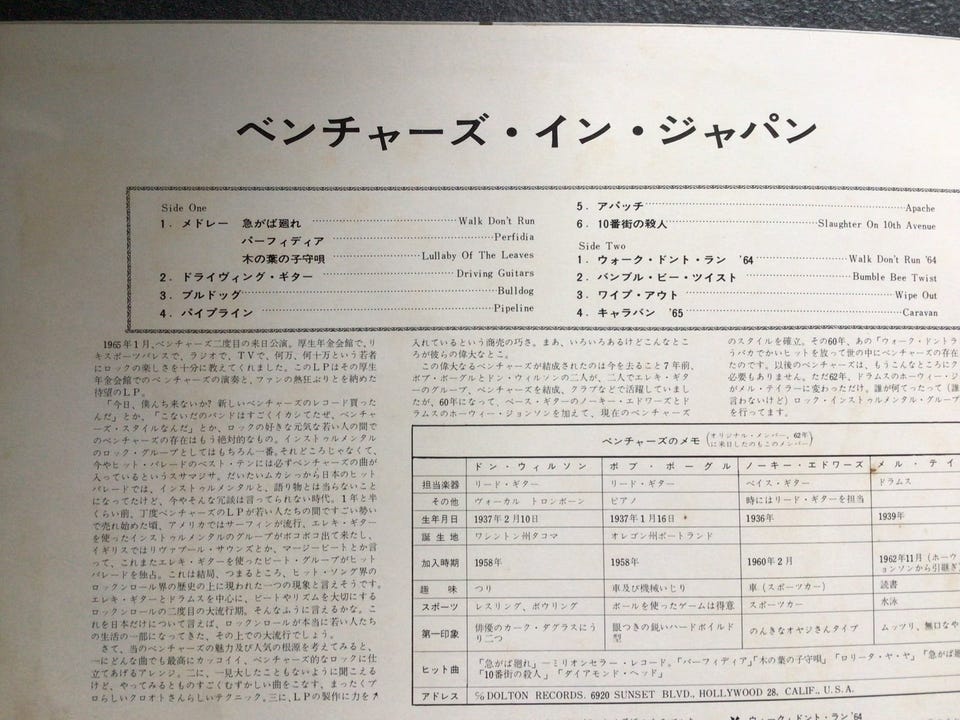 ベンチャーズ・イン・ジャパン
Side One
1. メドレー 急がば廻れ Walk Don't Run
パーフィディア Perfidia
木の葉の子守唄 Lullaby Of The Leaves
2. ドライヴィング・ギター Driving Guitars
3. ブルドッグ Bulldog
4. パイプライン Pipeline
5. アパッチ Apache
6. 10番街の殺人 Slaughter On 10th Avenue
Side Two
1. ウォーク・ドント・ラン '64 Walk Don't Run '64
2. バンブル・ビー・ツイスト Bumble Bee Twist
3. ワイプ・アウト Wipe Out
4. キャラバン '65 Caravan
1965年1月、ベンチャーズ二度目の来日公演。厚生年金会館で、リ
キスポーツパレスで、ラジオで、TVで、何万、何十万という若者
にロックの楽しさを十分に教えてくれました。このLPはその厚生
年金会館でのベンチャーズの演奏と、ファンの熱狂ぶりとを納めた
待望のLP。
「今日、僕んち来ないか? 新しいベンチャーズのレコード買った
んだ」とか、「こないだのバンドはすごくイカシてたぜ、ベンチャー
ズ・スタイルなんだ」とか、ロックの好きな元気な若い人の間で
のベンチャーズの存在はもう絶対的なもの。インストゥルメンタル
のロック・グループとしてはもちろん一番。それどころじゃなくて、
今やヒット・パレードのベスト・テンには必ずベンチャーズの曲が
入っているというスサマジサ。だいたいムカシっから日本のヒット
パレードでは、インストゥルメンタルと、語り物とは当らないこと
になってたけど、今やそんな冗談は言ってられない時代。1年と半
くらい前、丁度ベンチャーズのLPが若い人たちの間ですごい勢い
で売れ始めた頃、アメリカではサーフィンが流行、エレキ・ギター
を使ったインストゥルメンタルのグループがボコボコ出て来たし、
イギリスではリヴァプール・サウンズとか、マージービートとか言
って、これまたエレキ・ギターを使ったビート・グループがヒット
パレードを独占。これは結局、つまるところ、ヒット・ソング界の
ロックンロール界の歴史の上に現われた一つの現象と言えそうです。
エレキ・ギターとドラムスを中心に、ビートやリズムを大切にする
ロックンロールの二度目の大流行期。そんなふうに言えるかな。こ
れを日本だけについて言えば、ロックンロールが本当に若い人たち
の生活の一部になってきた、その上での大流行でしょう。
さて、当のベンチャーズの魅力及び人気の根源を考えてみると、
一にどんな曲でも最高にカッコイイ、ベンチャーズ的なロックに仕
立てあげるアレンジ。二に、一見大したこともないように聞こえる
けど、やってみるとものすごくむずかしい曲をこなす、まったくプ
ロらしいクロオトさんらしいテクニック。三に、LPの製作に力を
入れているという商売の巧さ。まあ、いろいろあるけどこんなとこ
ろが彼らの偉大なとこ。
この偉大なるベンチャーズが結成されたのは今を去ること7年前、
ボブ・ボーグルとドン・ウィルソンの二人が、二人でエレキ・ギター
のグループ、ベンチャーズを結成、クラブなどで活躍していまし
たが、60年になって、ベース・ギターのノーキー・エドワーズとド
ラムスのホーウィー・ジョンソンを加えて、現在のベンチャーズ
のスタイルを確立。その60年、あの「ウォーク・ドントラ
うバカでかいヒットを放って世の中にベンチャーズの存在
たのです。以後のベンチャーズは、もうこんなところにク
必要もありません。ただ62年、ドラムスのホーウィー・ジ
がメル・テイラーに変わっただけ。誰が何てったって(誰
言わないけど)ロック・インストゥルメンタル・グループ
を行ってます。
ベンチャーズのメモ (オリジナル・メンバー、62年に来日したのもこのメンバー)
ドン・ウィルソン ボブ・ボーグル ノーキー・エドワーズ メル・テイ
担当楽器 リード・ギター リード・ギター ベイス・ギター ドラムス
その他 ヴォーカル トロンボーン ピアノ 時にはリード・ギターを担当
生年月日 1937年2月10日 1937年1月16日 1936年 1939年
誕生地 ワシントン州タコマ オレゴン州ポートランド
加入時期 1958年 1958年 1960年2月 1962年11月(ホーウ
ョンソンから引継ぎ)
趣味 つり 車及び機械いたり 車(スポーツカー) 読書
スポーツ レスリング、ボウリング ボールを使ったゲームは得意 スポーツカー 水泳
第一印象 俳優のカーク・ダグラスにうり二つ 眼つきの鋭いハードボイルド型 のんきなオヤジさんタイプ ムッツリ、無口なや
ヒット曲 「急がば廻れ」―ミリオンセラー・レコード。「パーフィディア」「木の葉の子守唄」「ロリータ・ヤ・ヤ」「急がば廻
「10番街の殺人」「ダイアモンド・ヘッド」
アドレス ℅ DOLTON RECORDS. 6920 SUNSET BLVD., HOLLYWOOD 28. CALIF., U.S.A.
ウォーク・ドント・ラン '64